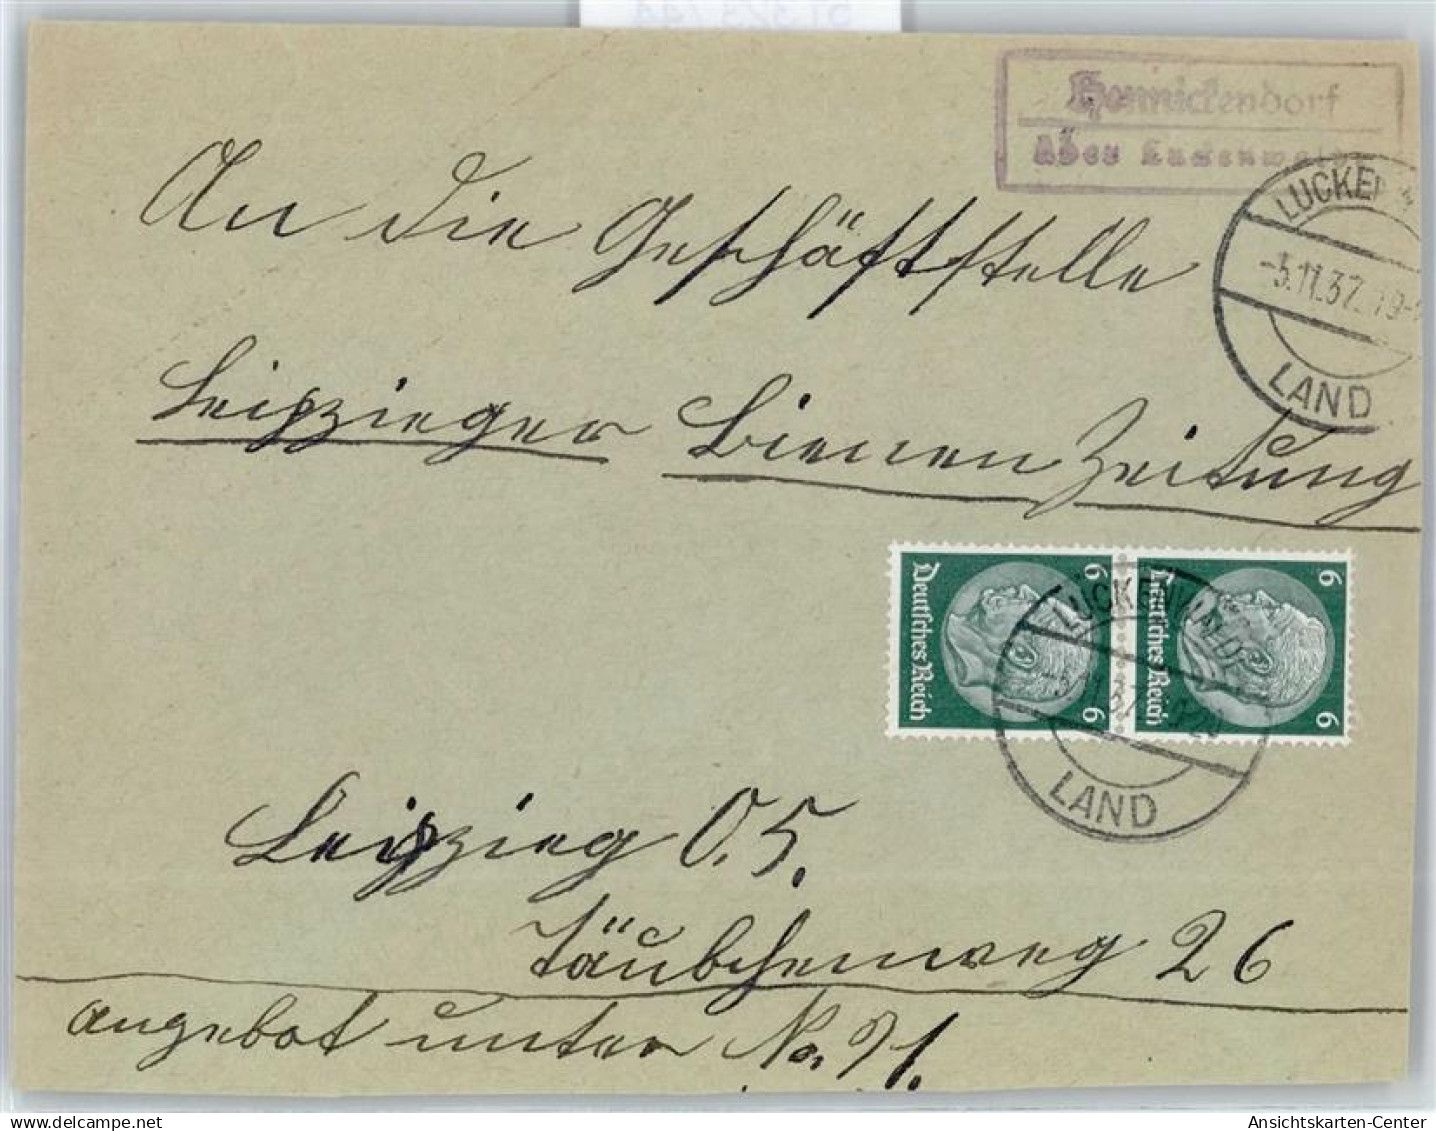 Hennickendorf
über Luckenwalde
LUCKENW
-5.11.37.19-
LAND
An die Geschäftstelle
Leipzieger Bienen Zeitung
6 Deutsches Reich 6
6 Deutsches Reich 6
LUCKENWALDE
LAND
Leipzieg O. 5.
Täubchenweg 26
angebot unter No.
Ansichtskarten-Center